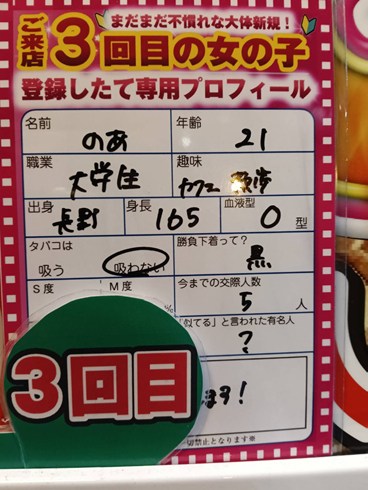 まだまだ不慣れな大体新規！
ご来店
3回目の女の子
登録したて専用プロフィール
名前 のあ 年齢 21
職業 大学生 趣味 カフェ 散歩
出身 長野 身長 165 血液型 O 型
タバコは 勝負下着って？
吸う 吸わない 黒
S度 M度 今までの交際人数
% 5 人
「似てる」と言われた有名人
?
ます！
3回目
切禁止となります※